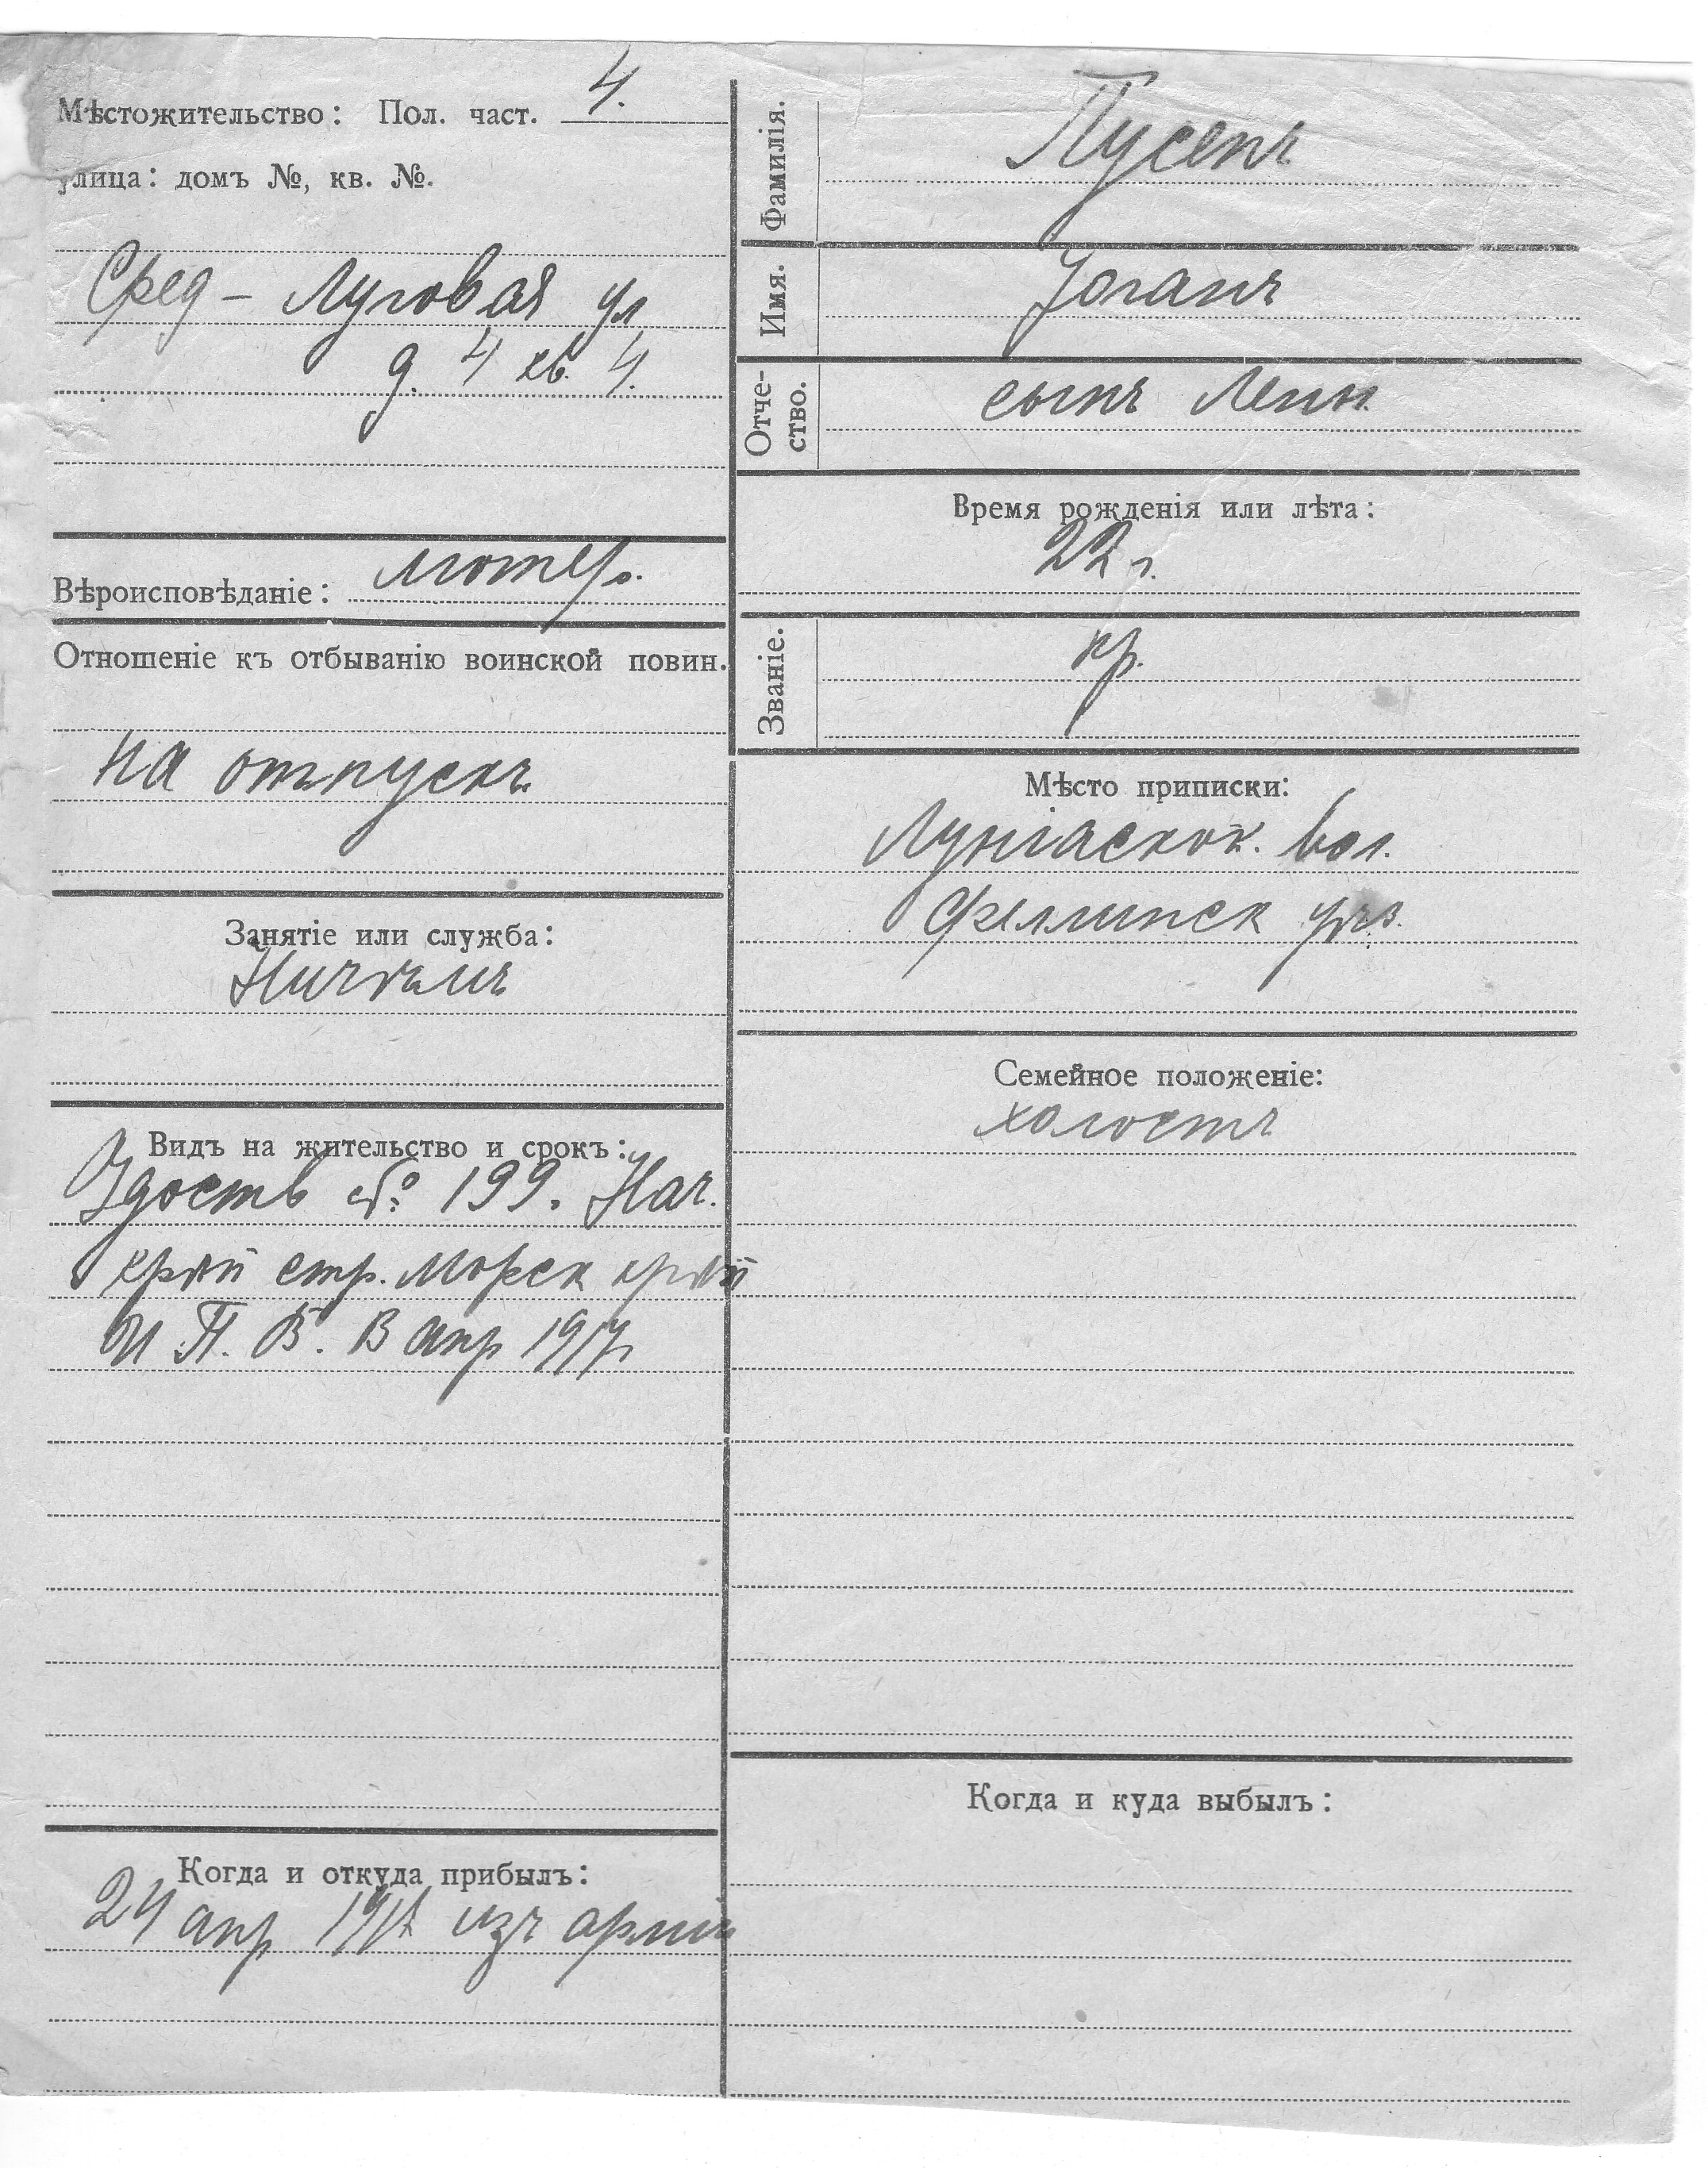 Мѣстожительство: Пол. част. 4.
улица: домъ №, кв. №.
Сред - Луговая ул
д. 4 кв. 4.
Вѣроисповѣданіе: лютер.
Отношеніе къ отбыванію воинской повин.
на отпускъ
Занятіе или служба:
Ничѣмъ
Видъ на жительство и срокъ:
Удоств № 199. Нач.
крѣп стр. Морск крѣп
И. П. В. В апр 1917
Когда и откуда прибылъ:
24 апр 1917 изъ арміи
Фамилія.
Пусепъ
Имя.
Іоганъ
Отче-
ство.
сынъ
Время рожденія или лѣта:
22 г.
Званіе.
кр.
Мѣсто приписки:
вол.
Феллинск уѣз.
Семейное положеніе:
холостъ
Когда и куда выбылъ: